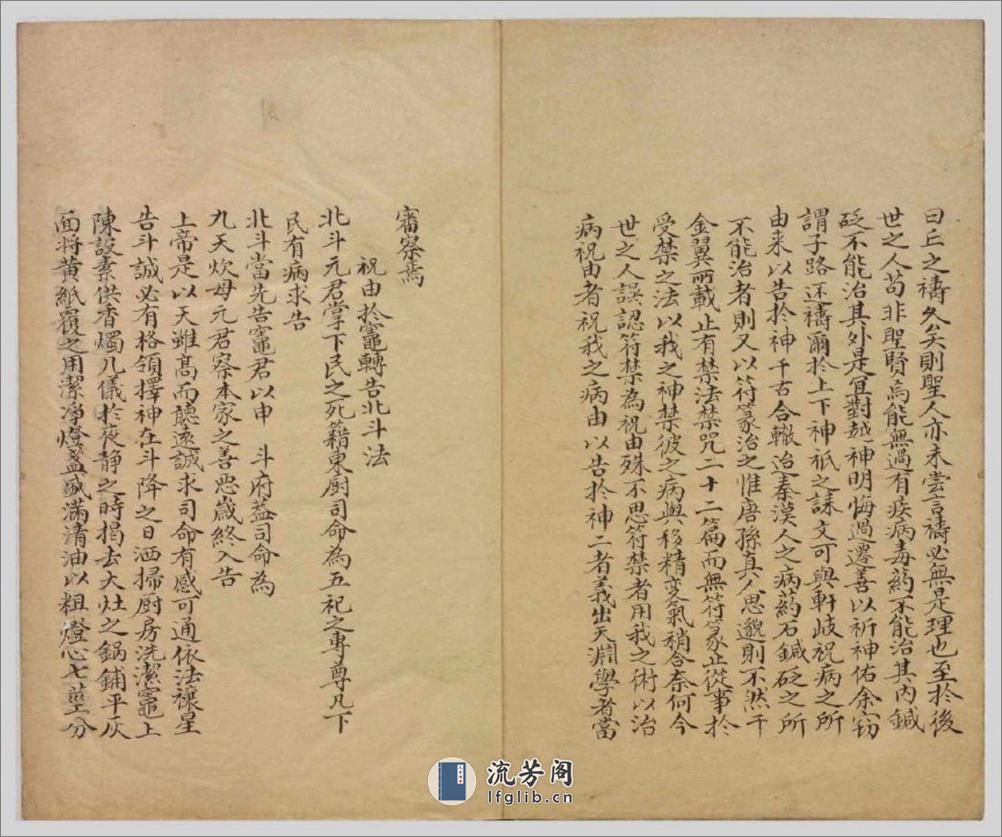 曰丘之禱久矣則聖人亦未嘗言禱必無是理也至於後
世之人苟非聖賢烏能無過有疾病毒藥不能治其內鍼
砭不能治其外是宜對越神明悔過遷善以祈神佑余竊
謂子路还禱爾於上下神祇之誄文可與軒岐祝病之所
由来以告於神千古合轍迨秦漢人之病药石鍼砭之所
不能治者則又以符篆治之惟唐孫真人思邈則不然千
金翼所載止有禁法禁咒二十二篇而無符篆止從事於
受禁之法以我之神禁彼之病與移精变氣稍合奈何今
世之人誤認符禁為祝由殊不思符禁者用我之術以治
病祝由者祝我之病由以告於神二者義出天淵學者當
審察焉
祝由於竈轉告北斗法
北斗元君掌下民之死籍東厨司命為五祀之專尊凡下
民有病求告
北斗當先告竈君以申 斗府葢司命為
九天炊母元君察本家之善恶歲終入告
上帝是以天雖髙而聽遠誠求司命有感可通依法禳星
告斗誠必有格領擇神在斗降之日洒掃厨房洗潔竈上
陳設素供香燭几儀於夜静之時揭去大灶之鍋鋪平灰
面将黄紙覆之用潔淨燈盞盛滿清油以粗燈心七莖分
流芳阁
lfglib.cn